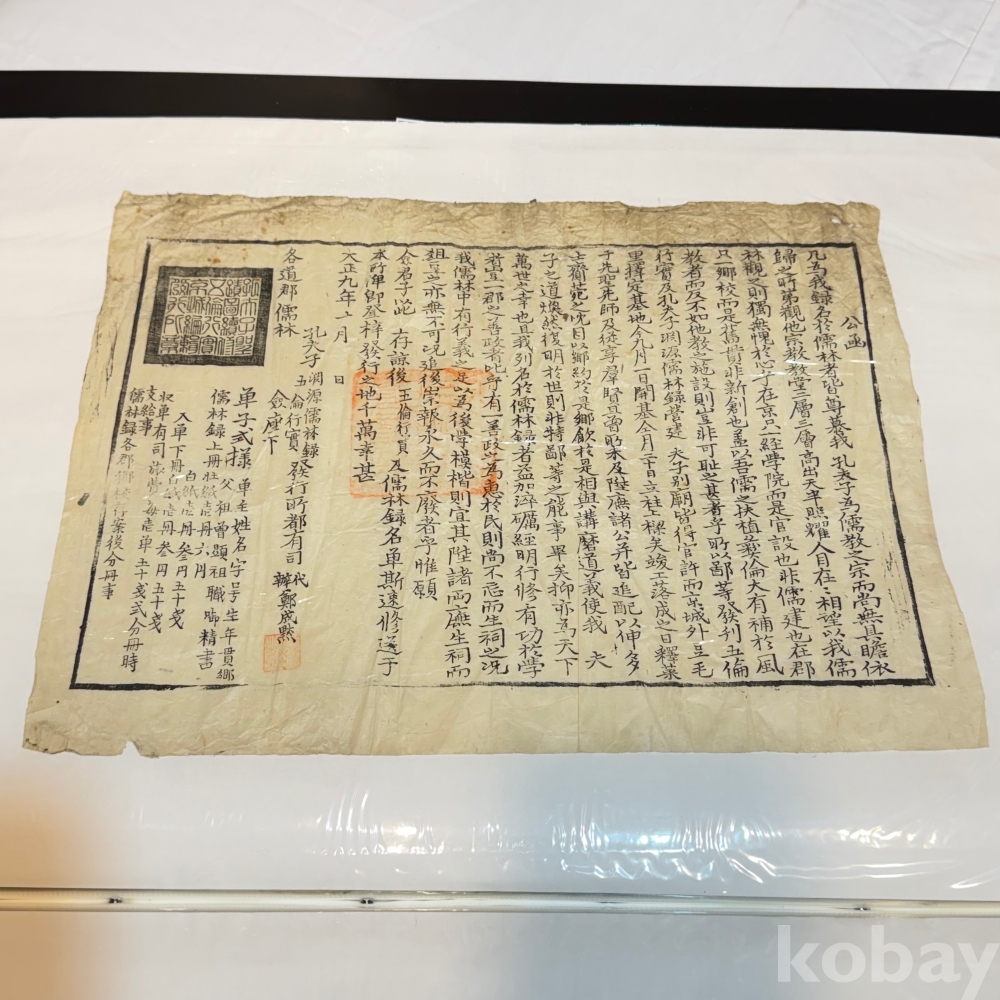 公函
凡爲我錄名於儒林者皆尊慕我 孔夫子爲儒教之宗而尚無其瞻依
歸之所第觀他宗教教堂二層三層高出天半照耀人目在在相望以我儒
林觀之則獨無愧於心乎在京只一經學院而是官設也非儒建也在郡
只一鄉校而是舊貫非新創也盖以吾儒之扶植彛倫大有補於風
教者而反不如他教之施設則豈非可恥之甚者乎所以鄙等發刊五倫
行實及孔夫子洞源儒林錄營建 夫子別廟皆得官許而京城外豆毛
里擇定基地今九月一日開基仝月二十日立柱上樑矣竣工落成之日釋菜
于先聖先師及從享群賢且曺昭來及陞廡諸公并皆追配以伸多
士齎菀之忱因以鄉約於是鄉飮於是相與講磨道義使我 夫
子之道煥然復明於世則非特鄙等之能事畢矣抑亦爲天下
萬世之幸也且我列名於儒林錄者益加淬礪經明行修有功於學
者宜一郡之善政者比皆有善政之爲惠於民則尚不忘而生祠之况
我儒林中有行義之足以爲後學模楷則宜其陞諸兩廡生祠而
俎豆之亦無不可况追後崇報永久而不廢者乎惟願
僉君子茲 存諒後五倫行實及儒林錄名單斯速修送于
本所俾卽登梓發行之地千萬幸甚
大正九年 月 日
各道郡儒林
孔夫子洞源儒林錄
五倫行實 發行所都有司
代辦鄭成默
僉座下
單子式樣 單壬姓名字号生年貫鄉
父祖曾顯祖職啣精書
儒林錄上冊壯紙壹冊六円
白紙壹冊叁円五十戔
入單下冊白紙壹冊叁円五十戔
收單有司旅費每壹單五十戔式分冊時
支給事
儒林錄各郡鄉校行業後分冊事